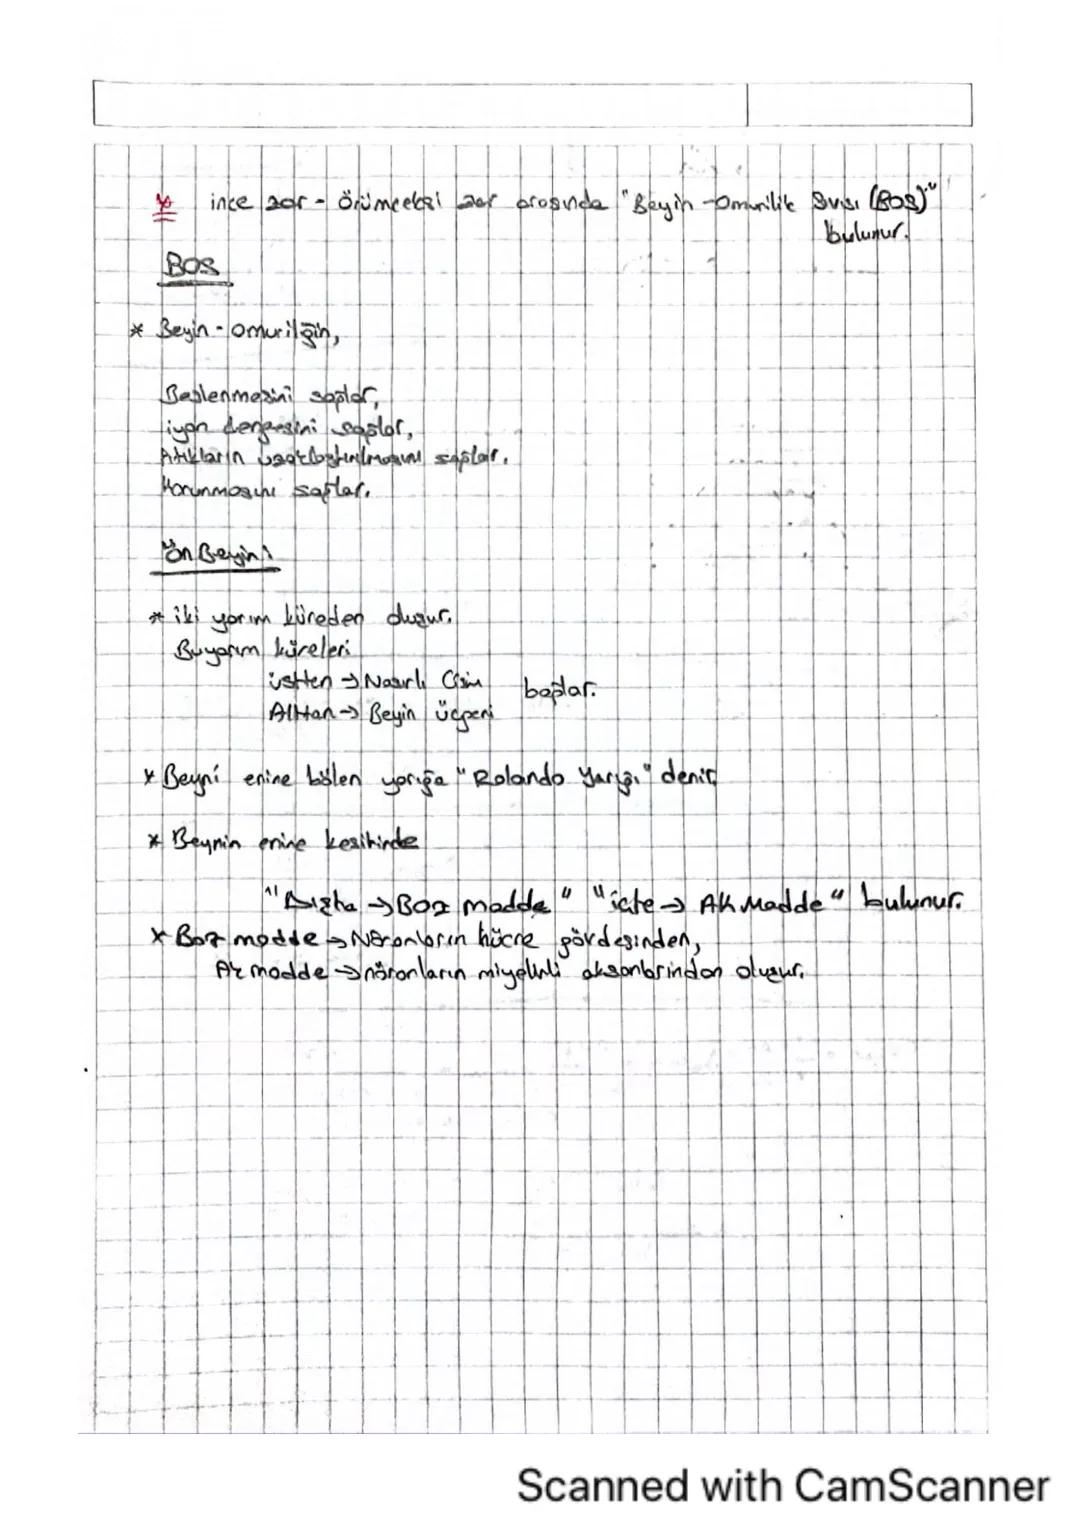 * ince zar - Örümceksi zar arasında "Beyin-Omurilik Sıvısı (BOS)"
bulunur.
BOS
* Beyin - omuriliğin,
Beslenmesini sağlar,
iyon dengesini sağlar,
Atıkların uzaklaştırılmasını sağlar.
Korunmasını sağlar.
Ön Beyin:
* iki yarım küreden oluşur.
Bu yarım küreleri
üstten → Nasırlı Cisim bağlar.
Alttan → Beyin üçgeni
* Beyni enine bölen yarığa "Rolando Yarığı" denir.
* Beynin enine kesitinde
"Dışta → Boz madde" "içte → Ak Madde" bulunur.
* Boz madde → Nöronların hücre gövdesinden,
Ak madde → nöronların miyelinli aksonlarından oluşur.
Scanned with CamScanner